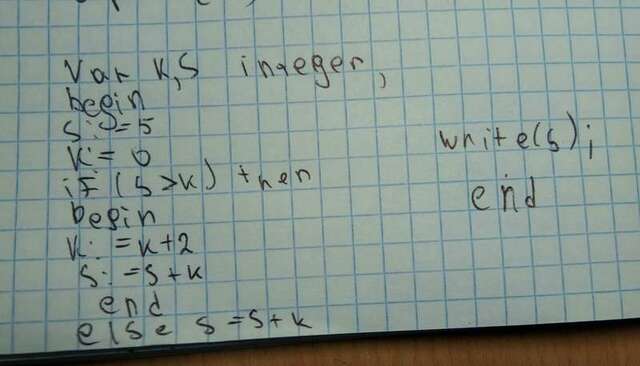 Var k,s inqeger,
begin
s:=5
k:=0
if(s>k) then
begin
k:=k+2
s:=s+k
end
else s=s+k
write(s);
end